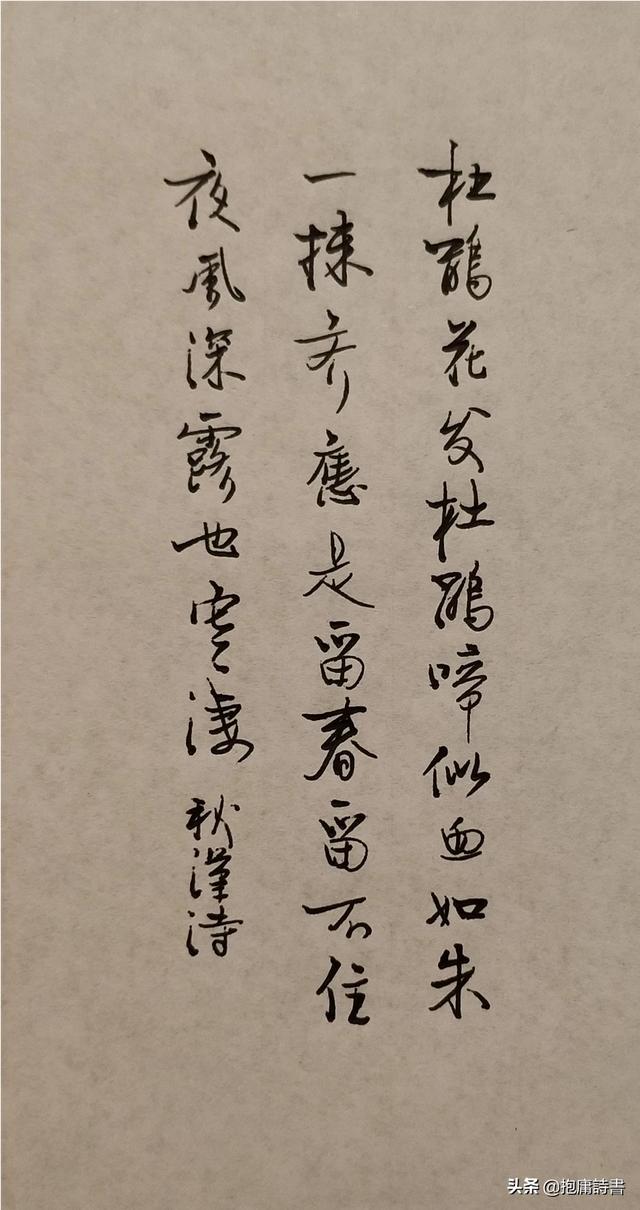 杜鵑花发杜鵑啼似血如朱
一抹齐應是留春留不住
夜風深露也寒淒
秋瑾詩
头条 @抱庸詩書